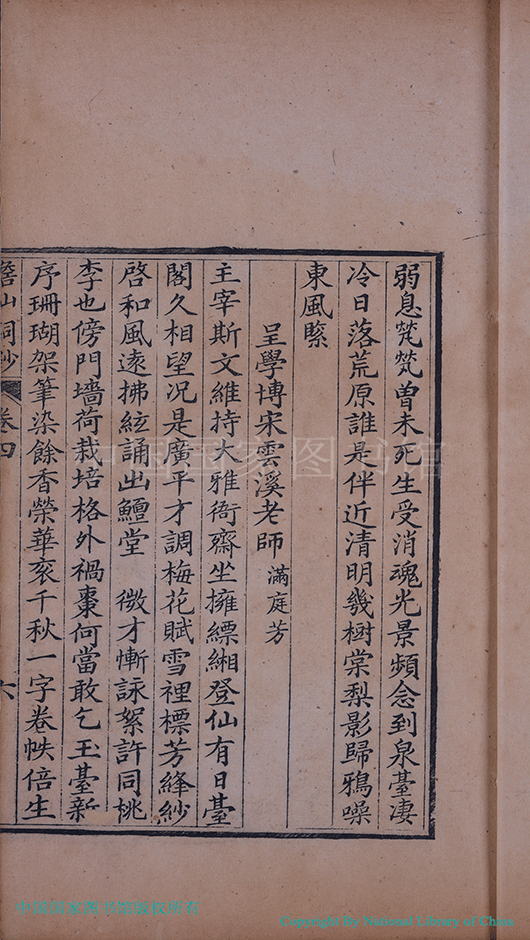 弱息煢煢曽未死生受消魂光景頻念到泉臺凄
冷日落荒原誰是伴近清明幾樹棠梨影歸鴉噪
東風緊
呈學博宋雲溪老師 滿庭芳
主宰斯文維持大雅衙齋坐擁縹緗登仙有日臺
閣久相望況是廣平才調梅花賦雪裡標芳絳紗
啓和風逺拂絃誦出鱣堂 微才慚詠絮許同桃
李也傍門墻荷栽培格外禍棗何當敢乞玉臺新
序珊瑚架筆染餘香榮華衮千秋一字卷帙倍生
山詞鈔 卷四 六
中国国家图书馆
中国国家图书馆版权所有
Copyright By National Library of China